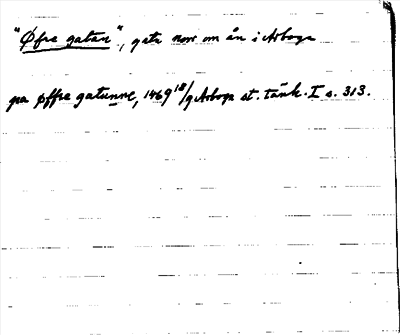 "Øfra gatan", gata norr om ån i Arboga
pa øffra gatunne, 1469 18/9 Arboga st. tänk. I s. 313.